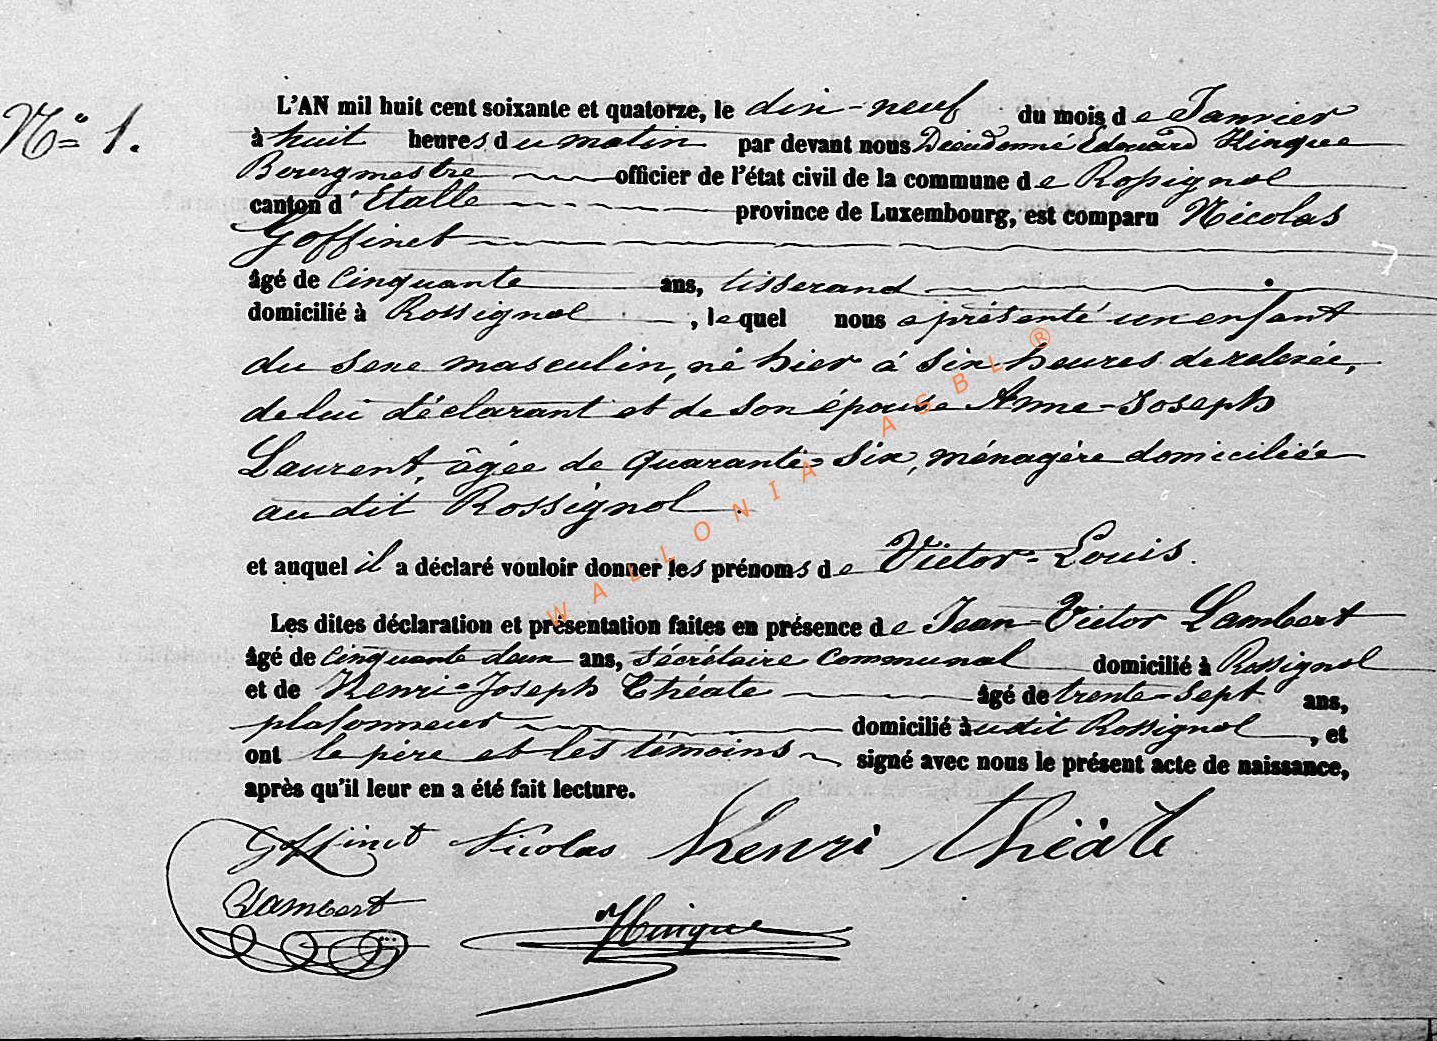 N° 1.
L'AN mil huit cent soixante et quatorze, le dix-neuf du mois de Janvier
à huit heures du matin par devant nous Dieudonné Edouard Hinque
Bourgmestre officier de l'état civil de la commune de Rossignol
canton d'Etalle province de Luxembourg, est comparu Nicolas
Goffinet
âgé de cinquante ans, tisserand
domicilié à Rossignol, lequel nous a présenté un enfant
du sexe masculin, né hier à six heures de relevée,
de lui déclarant et de son épouse Anne-Joseph
Laurent, âgée de quarante-six, ménagère domiciliée
au dit Rossignol.
et auquel il a déclaré vouloir donner les prénoms de Victor-Louis.
Les dites déclaration et présentation faites en présence de Jean-Victor Lambert
âgé de cinquante deux ans, sécrétaire communal domicilié à Rossignol
et de Henri-Joseph Théate âgé de trente-sept ans,
plafonneur domicilié audit Rossignol, et
ont le père et les témoins signé avec nous le présent acte de naissance,
après qu'il leur en a été fait lecture.
Goffinet Nicolas Henri Théate
Lambert Hinque
WALLONIA ASBL ®